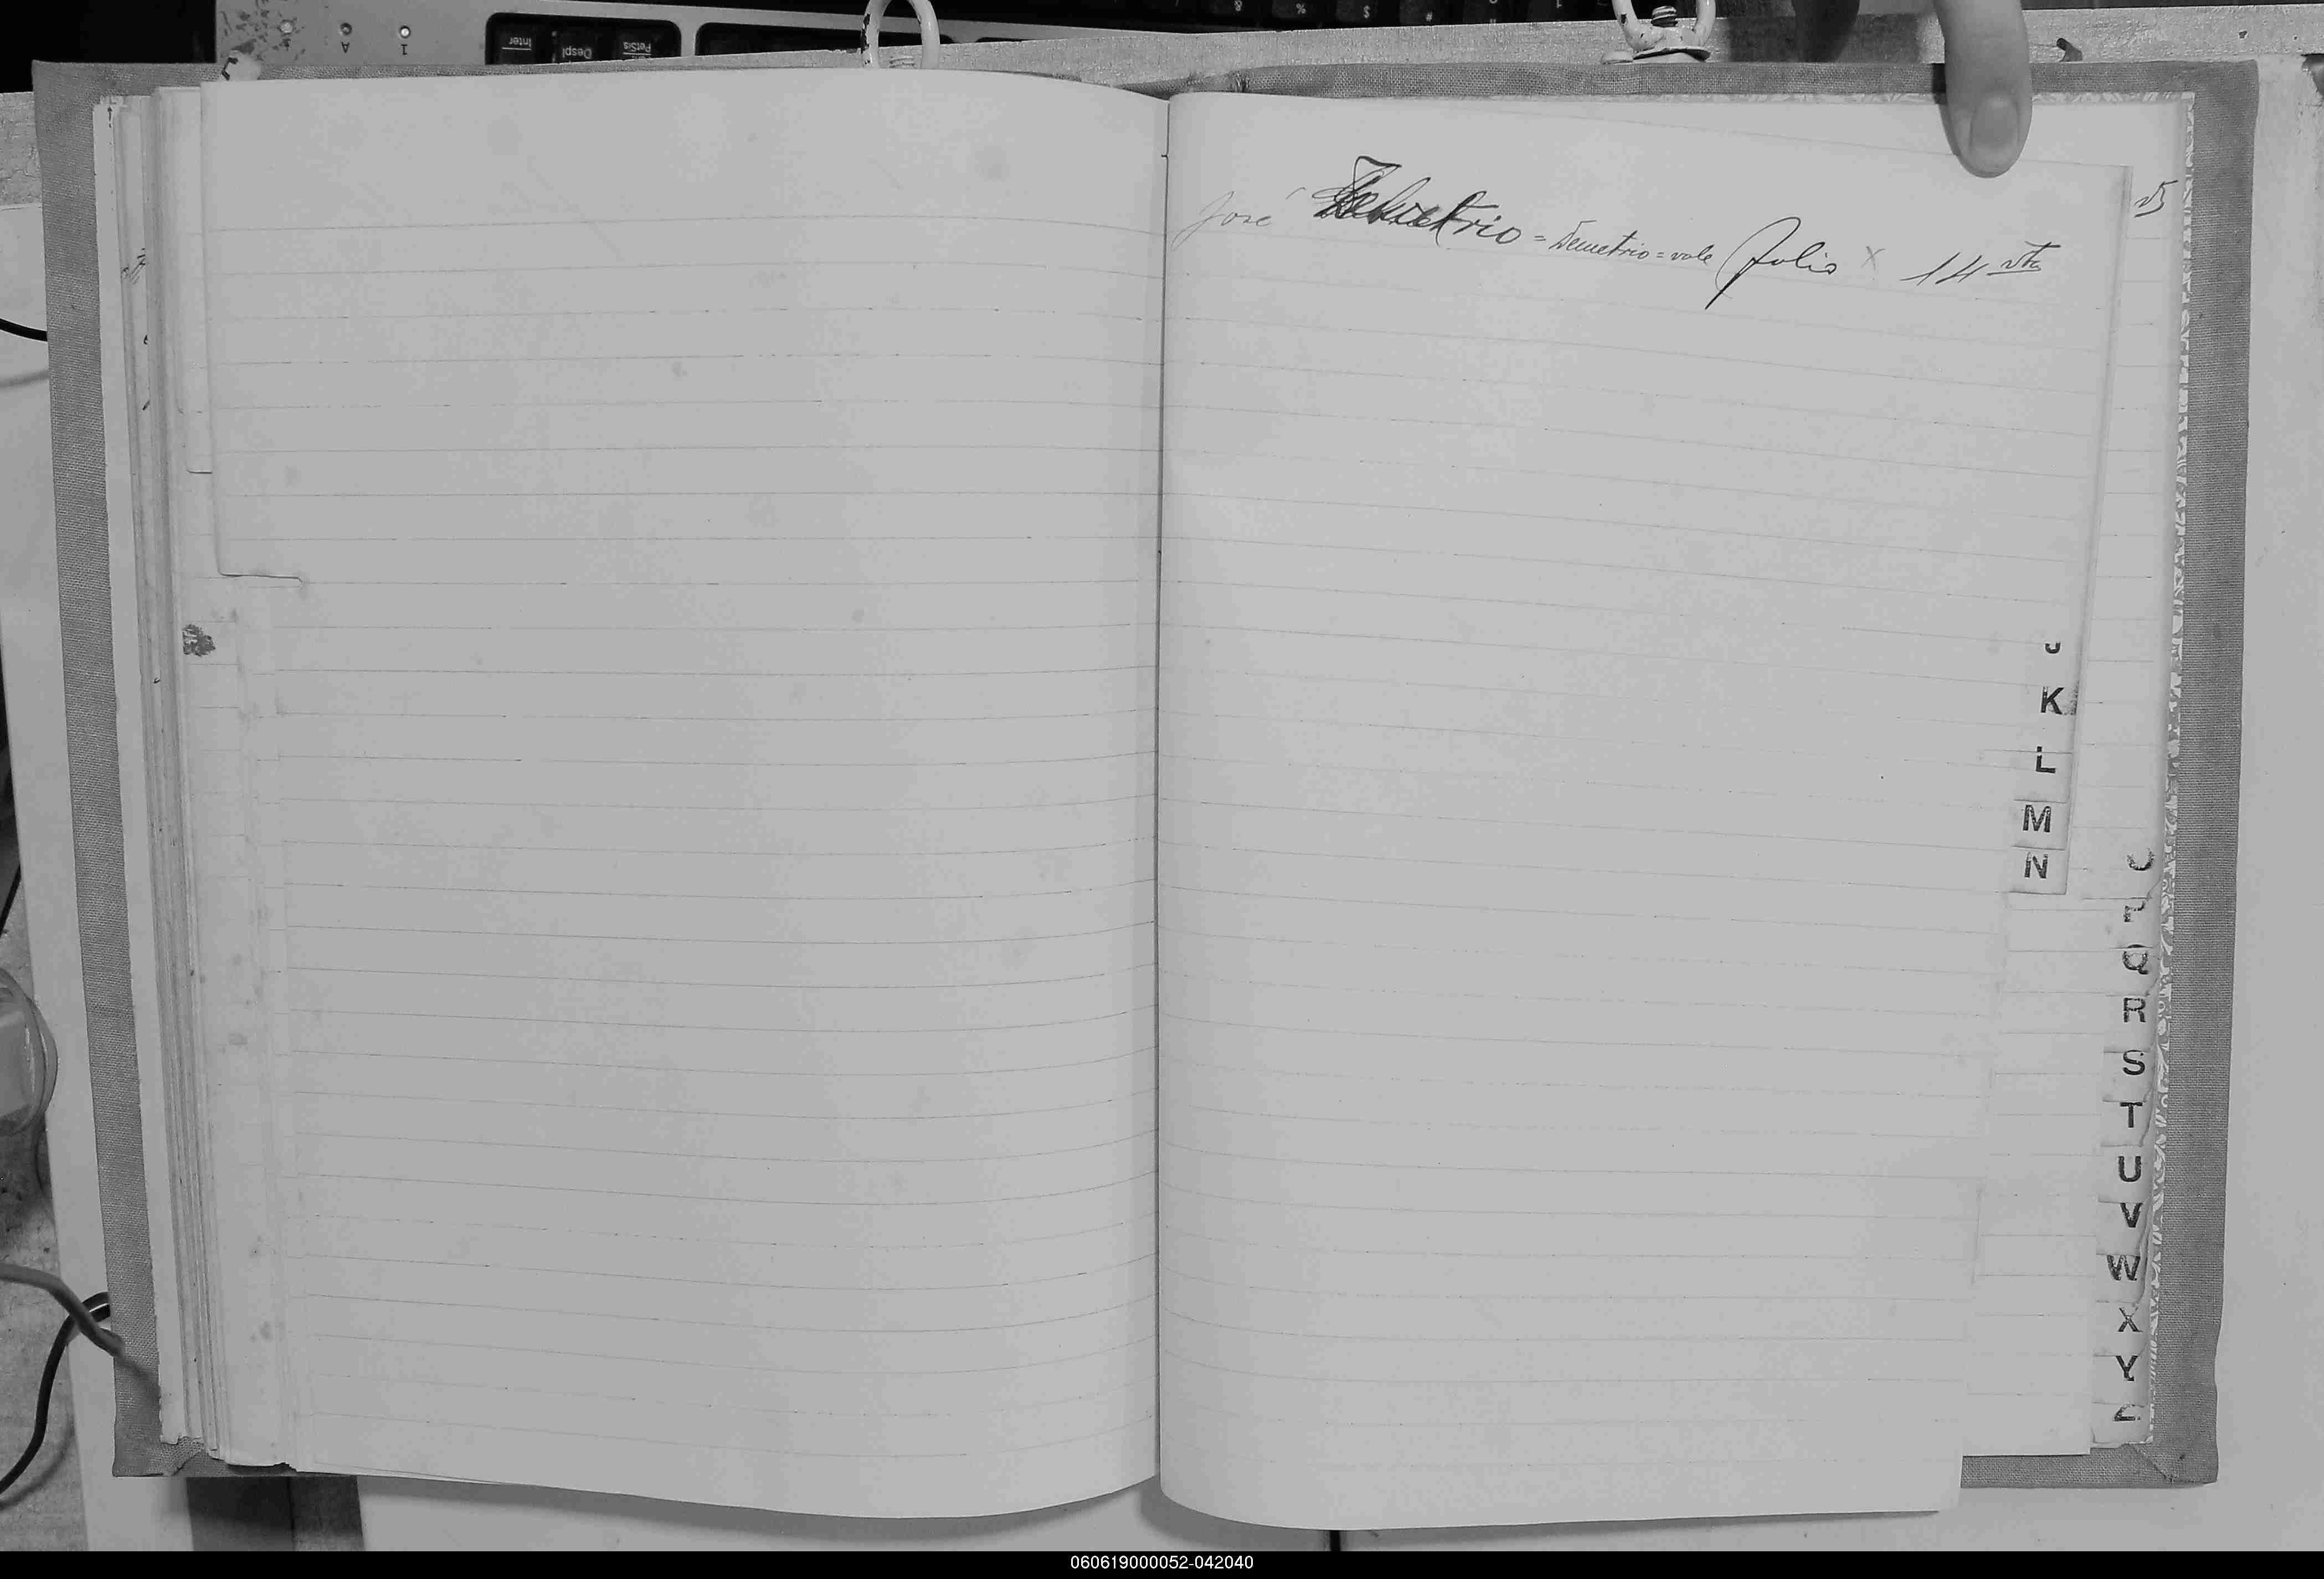 José Demetrio = Demetrio = vale folio x 14 vto
J
K
L
M
N
Q
R
S
T
U
V
W
X
Y
060619000052-042040